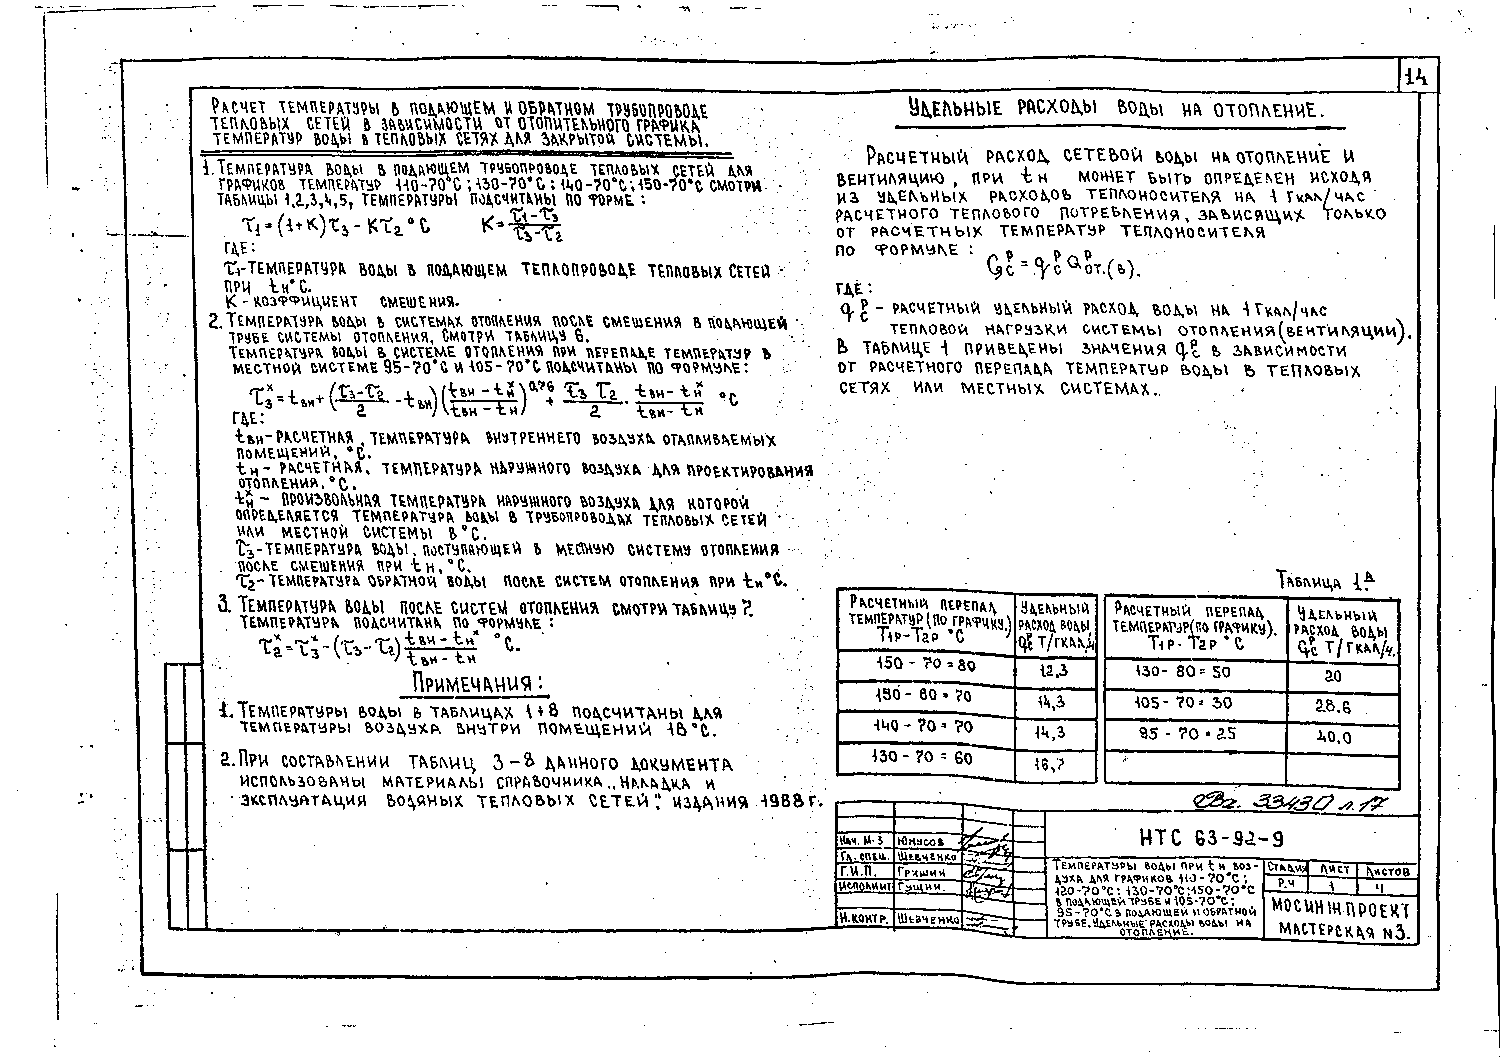 14
РАСЧЕТ ТЕМПЕРАТУРЫ В ПОДАЮЩЕМ И ОБРАТНОМ ТРУБОПРОВОДЕ
ТЕПЛОВЫХ СЕТЕЙ В ЗАВИСИМОСТИ ОТ ОТОПИТЕЛЬНОГО ГРАФИКА
ТЕМПЕРАТУР ВОДЫ В ТЕПЛОВЫХ СЕТЯХ ДЛЯ ЗАКРЫТОЙ СИСТЕМЫ.
1. ТЕМПЕРАТУРА ВОДЫ В ПОДАЮЩЕМ ТРУБОПРОВОДЕ ТЕПЛОВЫХ СЕТЕЙ ДЛЯ
ГРАФИКОВ ТЕМПЕРАТУР 110-70°С; 130-70°С; 140-70°С; 150-70°С СМОТРИ
ТАБЛИЦЫ 1,2,3,4,5, ТЕМПЕРАТУРЫ ПОДСЧИТАНЫ ПО ФОРМЕ:
τ1=(1+К)τ3-Кτ2 °С К=(τ1-τ3)/(τ3-τ2)
ГДЕ:
τ1-ТЕМПЕРАТУРА ВОДЫ В ПОДАЮЩЕМ ТЕПЛОПРОВОДЕ ТЕПЛОВЫХ СЕТЕЙ
ПРИ tн°С.
К-КОЭФФИЦИЕНТ СМЕШЕНИЯ.
2. ТЕМПЕРАТУРА ВОДЫ В СИСТЕМАХ ОТОПЛЕНИЯ ПОСЛЕ СМЕШЕНИЯ В ПОДАЮЩЕЙ
ТРУБЕ СИСТЕМЫ ОТОПЛЕНИЯ, СМОТРИ ТАБЛИЦУ 6.
ТЕМПЕРАТУРА ВОДЫ В СИСТЕМЕ ОТОПЛЕНИЯ ПРИ ПЕРЕПАДЕ ТЕМПЕРАТУР В
МЕСТНОЙ СИСТЕМЕ 95-70°С И 105-70°С ПОДСЧИТАНЫ ПО ФОРМУЛЕ:
τ3ˣ=tвн+((τ3-τ2)/2 -tвн)((tвн-tнˣ)/(tвн-tн))^0,76 + (τ3 τ2)/2 · (tвн-tнˣ)/(tвн-tн) °С
ГДЕ:
tвн-РАСЧЕТНАЯ, ТЕМПЕРАТУРА ВНУТРЕННЕГО ВОЗДУХА ОТАПЛИВАЕМЫХ
ПОМЕЩЕНИЙ, °С.
tн- РАСЧЕТНАЯ, ТЕМПЕРАТУРА НАРУЖНОГО ВОЗДУХА ДЛЯ ПРОЕКТИРОВАНИЯ
ОТОПЛЕНИЯ, °С.
tнˣ- ПРОИЗВОЛЬНАЯ ТЕМПЕРАТУРА НАРУЖНОГО ВОЗДУХА ДЛЯ КОТОРОЙ
ОПРЕДЕЛЯЕТСЯ ТЕМПЕРАТУРА ВОДЫ В ТРУБОПРОВОДАХ ТЕПЛОВЫХ СЕТЕЙ
ИЛИ МЕСТНОЙ СИСТЕМЫ В °С.
τ3-ТЕМПЕРАТУРА ВОДЫ, ПОСТУПАЮЩЕЙ В МЕСТНУЮ СИСТЕМУ ОТОПЛЕНИЯ
ПОСЛЕ СМЕШЕНИЯ ПРИ tн, °С.
τ2-ТЕМПЕРАТУРА ОБРАТНОЙ ВОДЫ ПОСЛЕ СИСТЕМ ОТОПЛЕНИЯ ПРИ tн°С.
3. ТЕМПЕРАТУРА ВОДЫ ПОСЛЕ СИСТЕМ ОТОПЛЕНИЯ СМОТРИ ТАБЛИЦУ 7.
ТЕМПЕРАТУРА ПОДСЧИТАНА ПО ФОРМУЛЕ:
τ2ˣ=τ3ˣ-(τ3-τ2)(tвн-tнˣ)/(tвн-tн) °С.
ПРИМЕЧАНИЯ:
1. ТЕМПЕРАТУРЫ ВОДЫ В ТАБЛИЦАХ 1÷8 ПОДСЧИТАНЫ ДЛЯ
ТЕМПЕРАТУРЫ ВОЗДУХА ВНУТРИ ПОМЕЩЕНИЙ 18°С.
2. ПРИ СОСТАВЛЕНИИ ТАБЛИЦ 3-8 ДАННОГО ДОКУМЕНТА
ИСПОЛЬЗОВАНЫ МАТЕРИАЛЫ СПРАВОЧНИКА „НАЛАДКА И
ЭКСПЛУАТАЦИЯ ВОДЯНЫХ ТЕПЛОВЫХ СЕТЕЙ", ИЗДАНИЯ 1988 г.
УДЕЛЬНЫЕ РАСХОДЫ ВОДЫ НА ОТОПЛЕНИЕ.
РАСЧЕТНЫЙ РАСХОД СЕТЕВОЙ ВОДЫ НА ОТОПЛЕНИЕ И
ВЕНТИЛЯЦИЮ, ПРИ tн МОЖЕТ БЫТЬ ОПРЕДЕЛЕН ИСХОДЯ
ИЗ УДЕЛЬНЫХ РАСХОДОВ ТЕПЛОНОСИТЕЛЯ НА 1 ГКАЛ/ЧАС
РАСЧЕТНОГО ТЕПЛОВОГО ПОТРЕБЛЕНИЯ, ЗАВИСЯЩИХ ТОЛЬКО
ОТ РАСЧЕТНЫХ ТЕМПЕРАТУР ТЕПЛОНОСИТЕЛЯ
ПО ФОРМУЛЕ:
Gсᴾ=qсᴾQᴾот.(в).
ГДЕ:
qсᴾ- РАСЧЕТНЫЙ УДЕЛЬНЫЙ РАСХОД ВОДЫ НА 1 ГКАЛ/ЧАС
ТЕПЛОВОЙ НАГРУЗКИ СИСТЕМЫ ОТОПЛЕНИЯ (ВЕНТИЛЯЦИИ).
В ТАБЛИЦЕ 1 ПРИВЕДЕНЫ ЗНАЧЕНИЯ qсᴾ В ЗАВИСИМОСТИ
ОТ РАСЧЕТНОГО ПЕРЕПАДА ТЕМПЕРАТУР ВОДЫ В ТЕПЛОВЫХ
СЕТЯХ ИЛИ МЕСТНЫХ СИСТЕМАХ.
ТАБЛИЦА 1ᴬ
РАСЧЕТНЫЙ ПЕРЕПАД ТЕМПЕРАТУР (ПО ГРАФИКУ.) T1P-T2P °С | УДЕЛЬНЫЙ РАСХОД ВОДЫ qсᴾ Т/ГКАЛ/Ч | РАСЧЕТНЫЙ ПЕРЕПАД ТЕМПЕРАТУР (ПО ГРАФИКУ). T1P-T2P °С | УДЕЛЬНЫЙ РАСХОД ВОДЫ qсᴾ Т/ГКАЛ/Ч.
150 - 70 = 80 | 12,3 | 130 - 80 = 50 | 20
150 - 80 = 70 | 14,3 | 105 - 70 = 30 | 28.6
140 - 70 = 70 | 14,3 | 95 - 70 = 25 | 40,0
130 - 70 = 60 | 16,7
Вг. 33430 л.17
НТС 63-92-9
НАЧ. М-3 ЮНУСОВ
ГЛ. СПЕЦ. ШЕВЧЕНКО
Г.И.П. ГРИШИН
ИСПОЛНИТ ГУЩИН
Н.КОНТР. ШЕВЧЕНКО
ТЕМПЕРАТУРЫ ВОДЫ ПРИ tн ВОЗ-
ДУХА ДЛЯ ГРАФИКОВ 110-70°С;
120-70°С; 130-70°С; 150-70°С
В ПОДАЮЩЕЙ ТРУБЕ И 105-70°С;
95-70°С В ПОДАЮЩЕЙ И ОБРАТНОЙ
ТРУБЕ. УДЕЛЬНЫЕ РАСХОДЫ ВОДЫ НА
ОТОПЛЕНИЕ.
СТАДИЯ ЛИСТ ЛИСТОВ
Р.Ч 1 4
МОСИНЖПРОЕКТ
МАСТЕРСКАЯ N3.